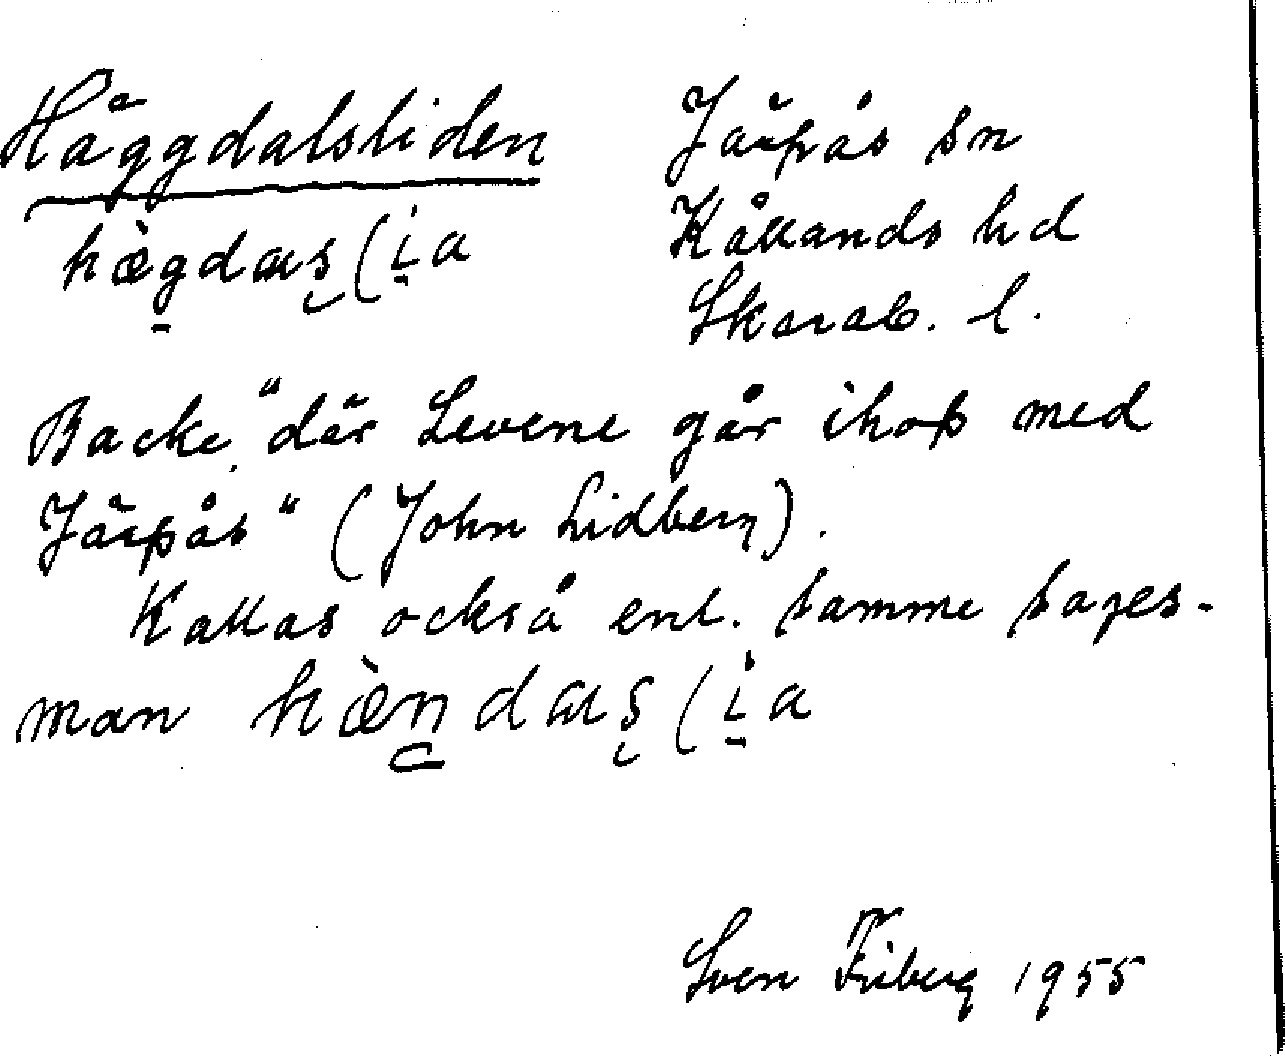 Häggdalsliden
Järpås sn
hæ̀gdaɩʂ(i̱a
Kållands hd
Skarab. l.
Backe, "där Levene går ihop med
Järpås" (John Lidberg).
Kallas också enl. samme sages-
man hæ̀ndaɩʂ(i̱a
Sven Friberg 1955